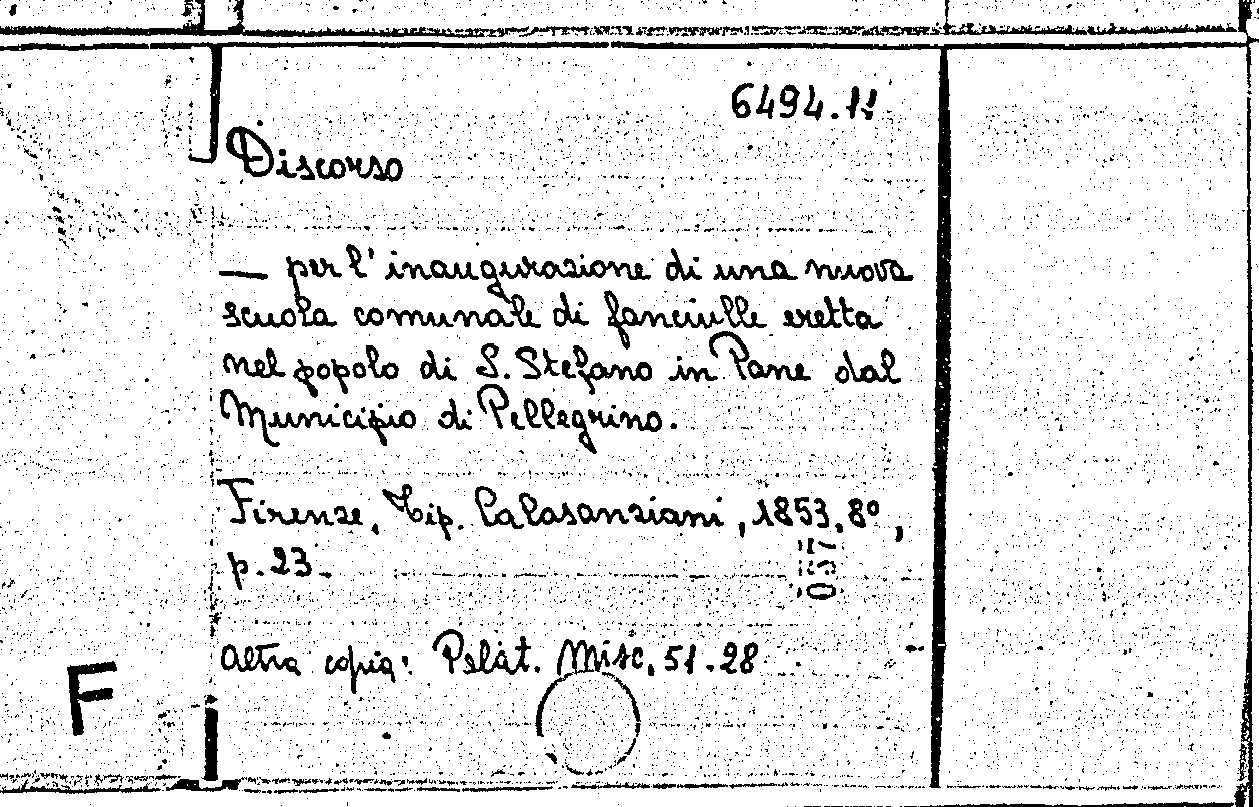 6494.11
Discorso
— per l'inaugurazione di una nuova
scuola comunale di fanciulle eretta
nel popolo di S. Stefano in Pane dal
Municipio di Pellegrino.
Firenze, Tip. Calasanziani, 1853, 8°,
p. 23.
Altra copia: Pelat. Misc. 51.28
F